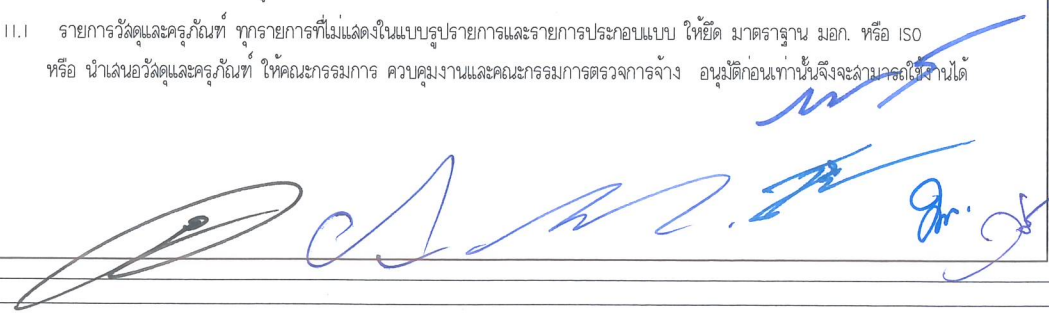 11.1 รายการวัสดุและครุภัณฑ์ ทุกรายการที่ไม่แสดงในแบบรูปรายการและรายการประกอบแบบ ให้ยึด มาตราฐาน มอก. หรือ ISO
หรือ นำเสนอวัสดุและครุภัณฑ์ ให้คณะกรรมการ ควบคุมงานและคณะกรรมการตรวจการจ้าง อนุมัติก่อนเท่านั้นจึงจะสามารถใช้งานได้